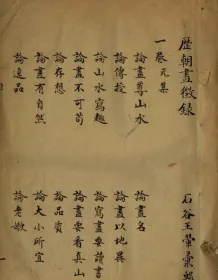 歷朝畫徵錄 石谷王翬彙
一卷元集
論畫尊山水 論畫名
論傳授 論畫以地異
論山水寫趣 論寫畫要讀書
論畫不可苟 論畫要看真山
論存想 論品質
論畫有自然 論大小所宜
論逸品 論老嫩